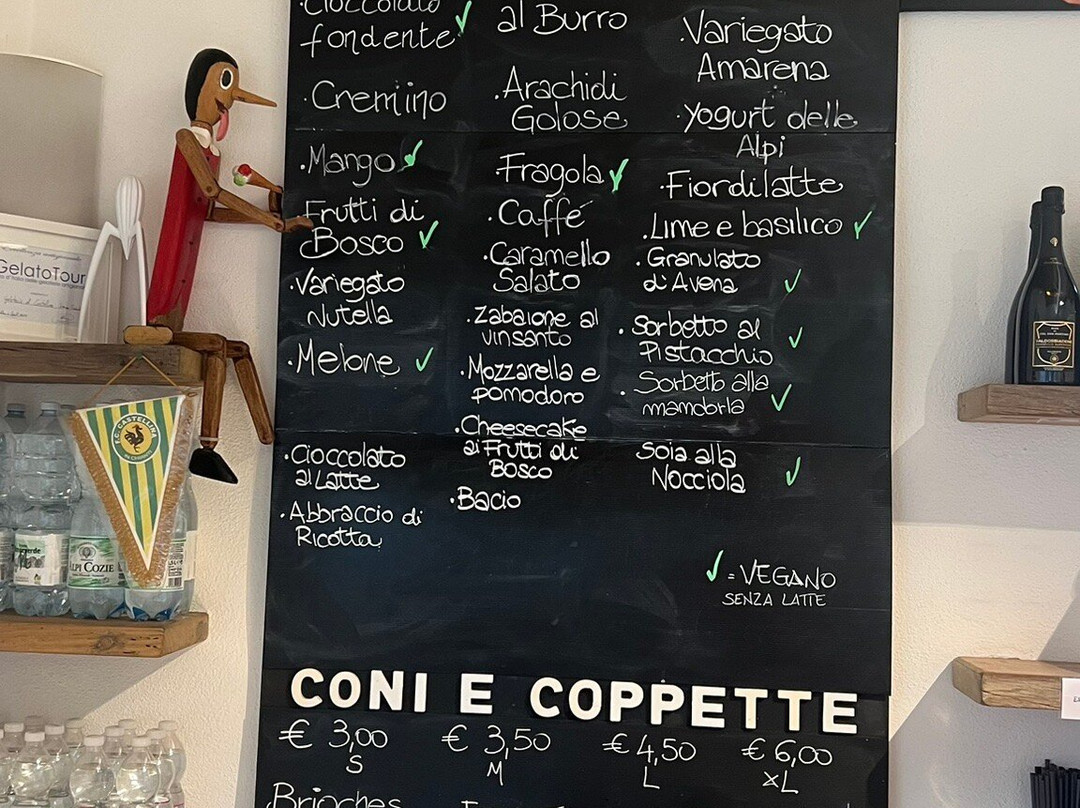 ·Cioccolato
fondente ✓
·Cremino
·Mango ✓
Frutti di
Bosco ✓
·Variegato
Nutella
·Melone ✓
·Cioccolato
al Latte
·Abbraccio di
Ricotta
al Burro
·Arachidi
Golose
·Fragola ✓
·Caffé
·Caramello
Salato
·Zabaione al
vinsanto
·Mozzarella e
pomodoro
·Cheesecake
ai Frutti di
Bosco
·Bacio
·Variegato
Amarena
·Yogurt delle
Alpi
·Fiordilatte
·Lime e basilico ✓
·Granulato
di Avena ✓
·Sorbetto al
Pistacchio ✓
·Sorbetto alla
mandorla ✓
Soia alla
Nocciola ✓
✓ = VEGANO
SENZA LATTE
CONI E COPPETTE
€ 3,00 € 3,50 € 4,50 € 6,00
S M L XL
Brioches
GelatoTour
F.C. CASTELLINA
ALPI COZIE